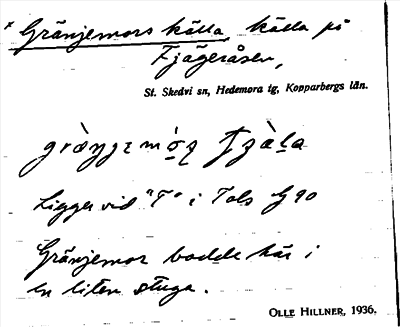 × Gränjemors källa, källa på
Fjägeråsen,
St. Skedvi sn, Hedemora tg, Kopparbergs län.
Ligger vid "T" i Tols
Gränjemor bodde här i
en liten stuga.
OLLE HILLNER, 1936.